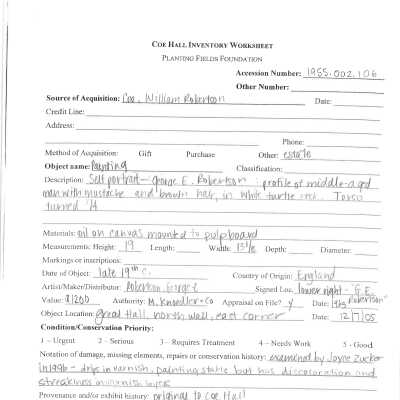 COE HALL INVENTORY WORKSHEET
PLANTING FIELDS FOUNDATION
Accession Number: 1955.002.106
Other Number:
Source of Acquisition: Coe, William Robertson Date:
Credit Line:
Address:
Phone:
Method of Acquisition: Gift Purchase Other: estate
Object name: Painting Classification:
Description: Self portrait - George E. Robertson : profile of middle-aged
man with mustache and brown hair, in white turtle neck. Torso
turned 3/4
Materials: oil on canvas mounted to pulpboard
Measurements: Height: 19 Length: Width: Depth: Diameter:
Markings or inscriptions:
Date of Object: late 19th c. Country of Origin: England
Artist/Maker/Distributor: Robertson, George E Signed Loc. lower right - "G.E.
Robertson"
Value: $1200 Authority: M. Knoedler + Co Appraisal on File? Y Date:
Object Location: Great Hall, north wall, east corner Date: 12/7/05
Condition/Conservation Priority:
1 - Urgent 2 - Serious 3 - Requires Treatment 4 - Needs Work 5 - Good
Notation of damage, missing elements, repairs or conservation history: examined by Joyce Zucker
in 1996 - drips in varnish, painting stable but has discoloration and
streakiness in varnish layers
Provenance and/or exhibit history: original to Coe Hall